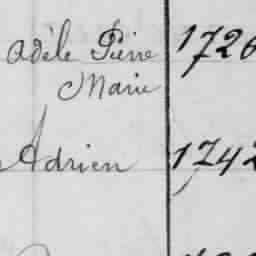 Adèle Pierre 1726
Marie
Adrien 1742